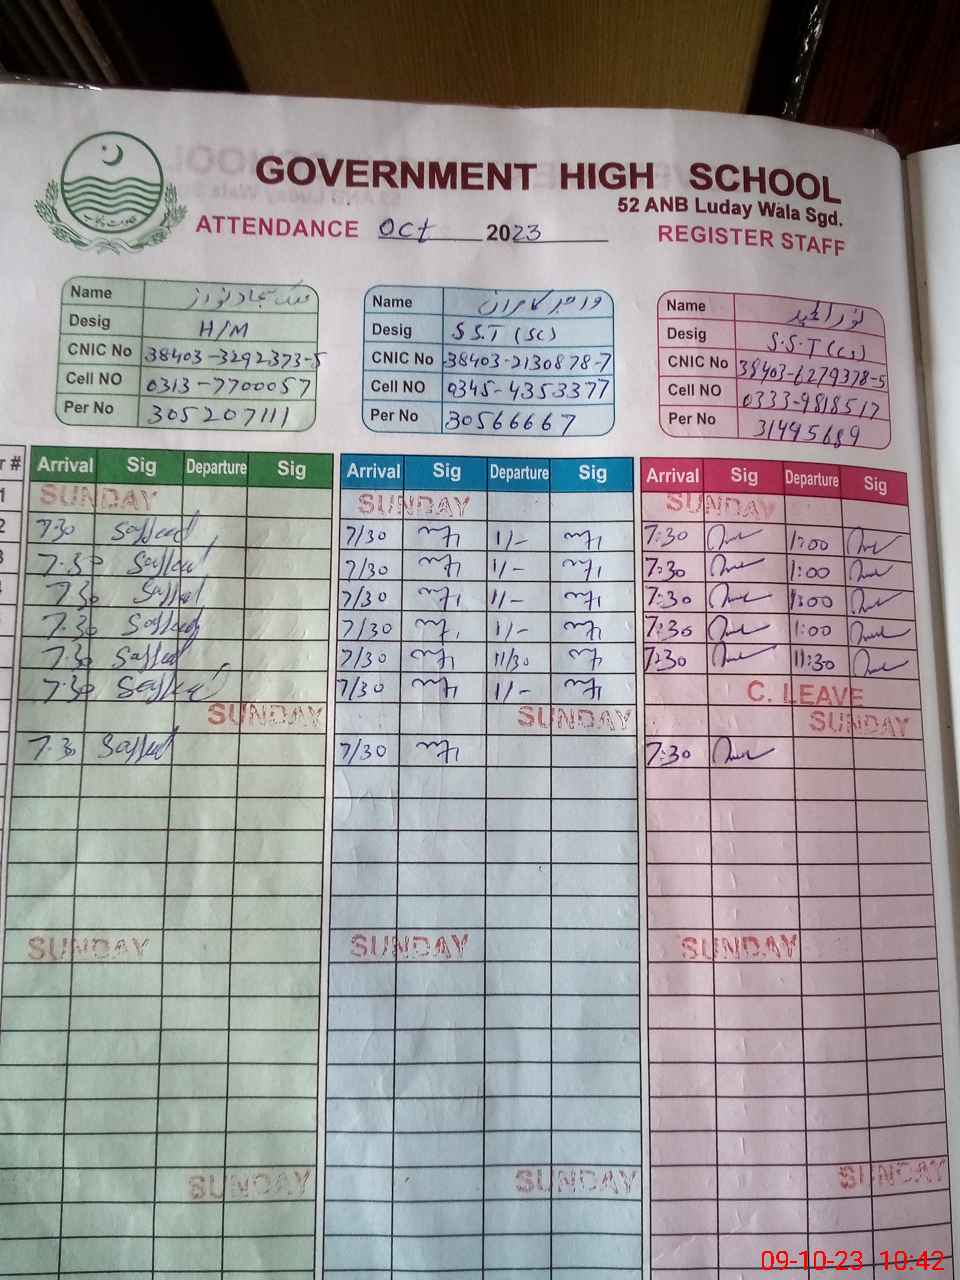 GOVERNMENT HIGH SCHOOL
52 ANB Luday Wala Sgd.
ATTENDANCE Oct 2023 REGISTER STAFF
Name
Desig H/M
CNIC No 38403-3292373-5
Cell NO 0313-7700057
Per No 305207111
Name
Desig S.S.T (SC)
CNIC No 38403-2130878-7
Cell NO 0345-4353377
Per No 30566667
Name
Desig S.S.T (CS)
CNIC No 38403-6279378-5
Cell NO 0333-9818517
Per No 31495689
r # Arrival Sig Departure Sig Arrival Sig Departure Sig Arrival Sig Departure Sig
1 SUNDAY SUNDAY SUNDAY
2 7.30 7/30 1/- 7:30 1:00
3 7.30 7/30 1/- 7:30 1:00
7.30 7/30 1/- 7:30 1:00
7.30 7/30 1/- 7:30 1:00
7.30 7/30 11/30 7:30 11:30
7.30 7/30 1/- C. LEAVE
SUNDAY SUNDAY SUNDAY
7.30 7/30 7:30
SUNDAY SUNDAY SUNDAY
SUNDAY SUNDAY SUNDAY
09-10-23 10:42